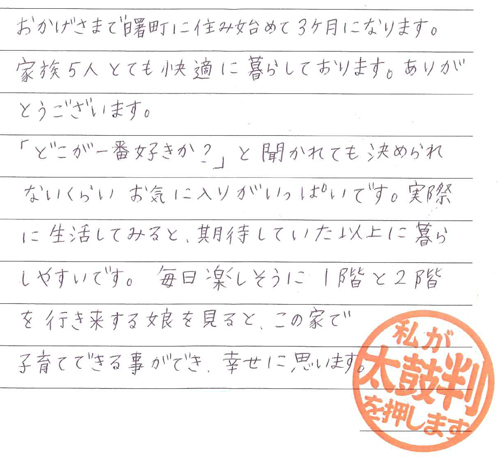 おかげさまで曙町に住み始めて3ヶ月になります。
家族5人とても快適に暮らしております。ありが
とうございます。
「どこが一番好きか?」と聞かれても決められ
ないくらいお気に入りがいっぱいです。実際
に生活してみると、期待していた以上に暮ら
しやすいです。毎日楽しそうに1階と2階
を行き来する娘を見ると、この家で
子育てできる事ができ、幸せに思います。
私が
太鼓判
を押します